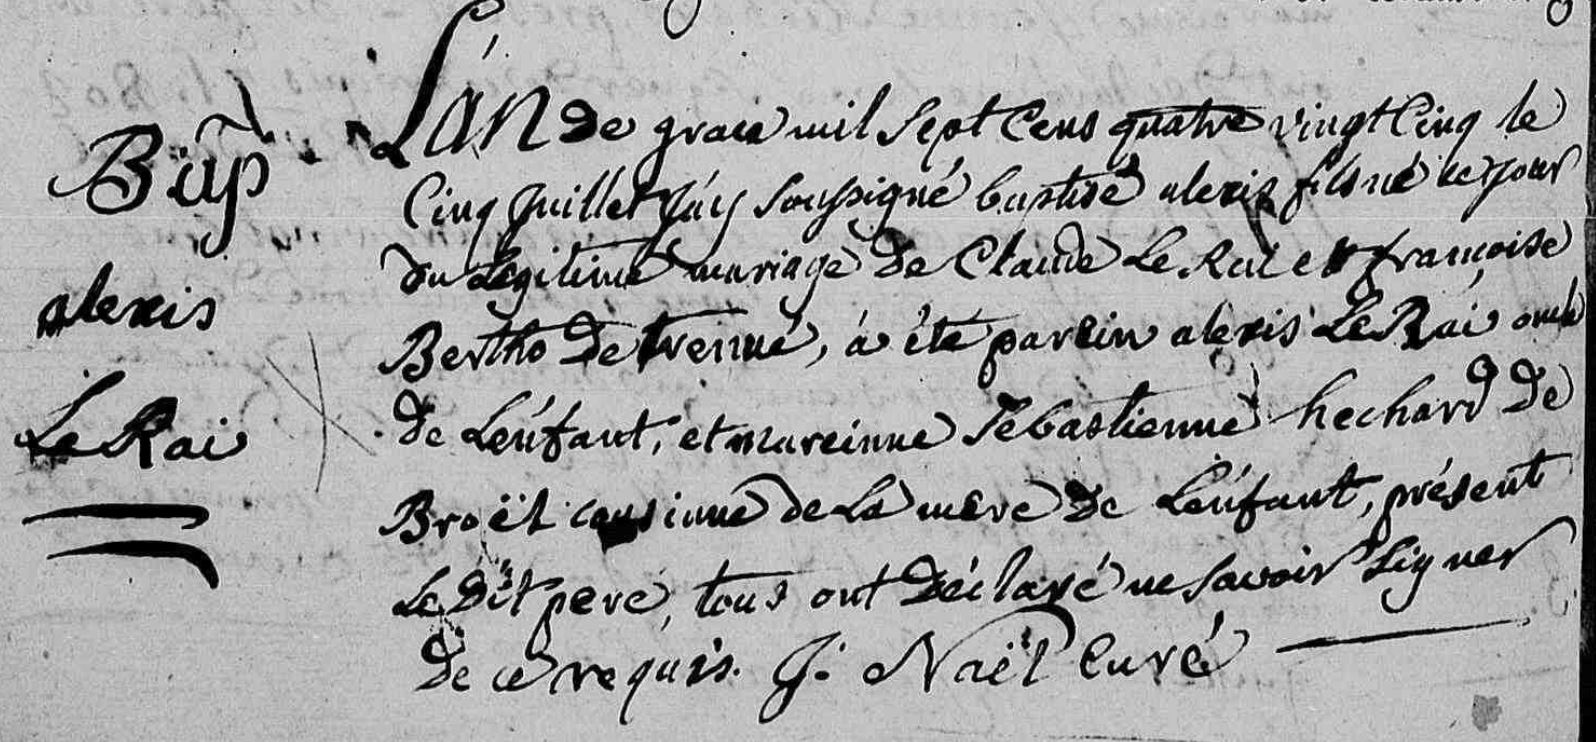 Bap
alexis
Le Rai
L'an de grace mil sept cens quatre vingt cinq le
cinq juillet j'ay soussigné baptisé alexis fils né ce jour
du legitime mariage de Claude Le Rai et françoise
Bertho de trenué, à été parein alexis Le Rai oncle
de l'enfant, et mareinne Sebastienne hechard de
Broël cousinne de La mere de L'enfant, présent
Le Dit pere, tous ont Déclaré ne savoir signer
de ce requis. J: Naël curé